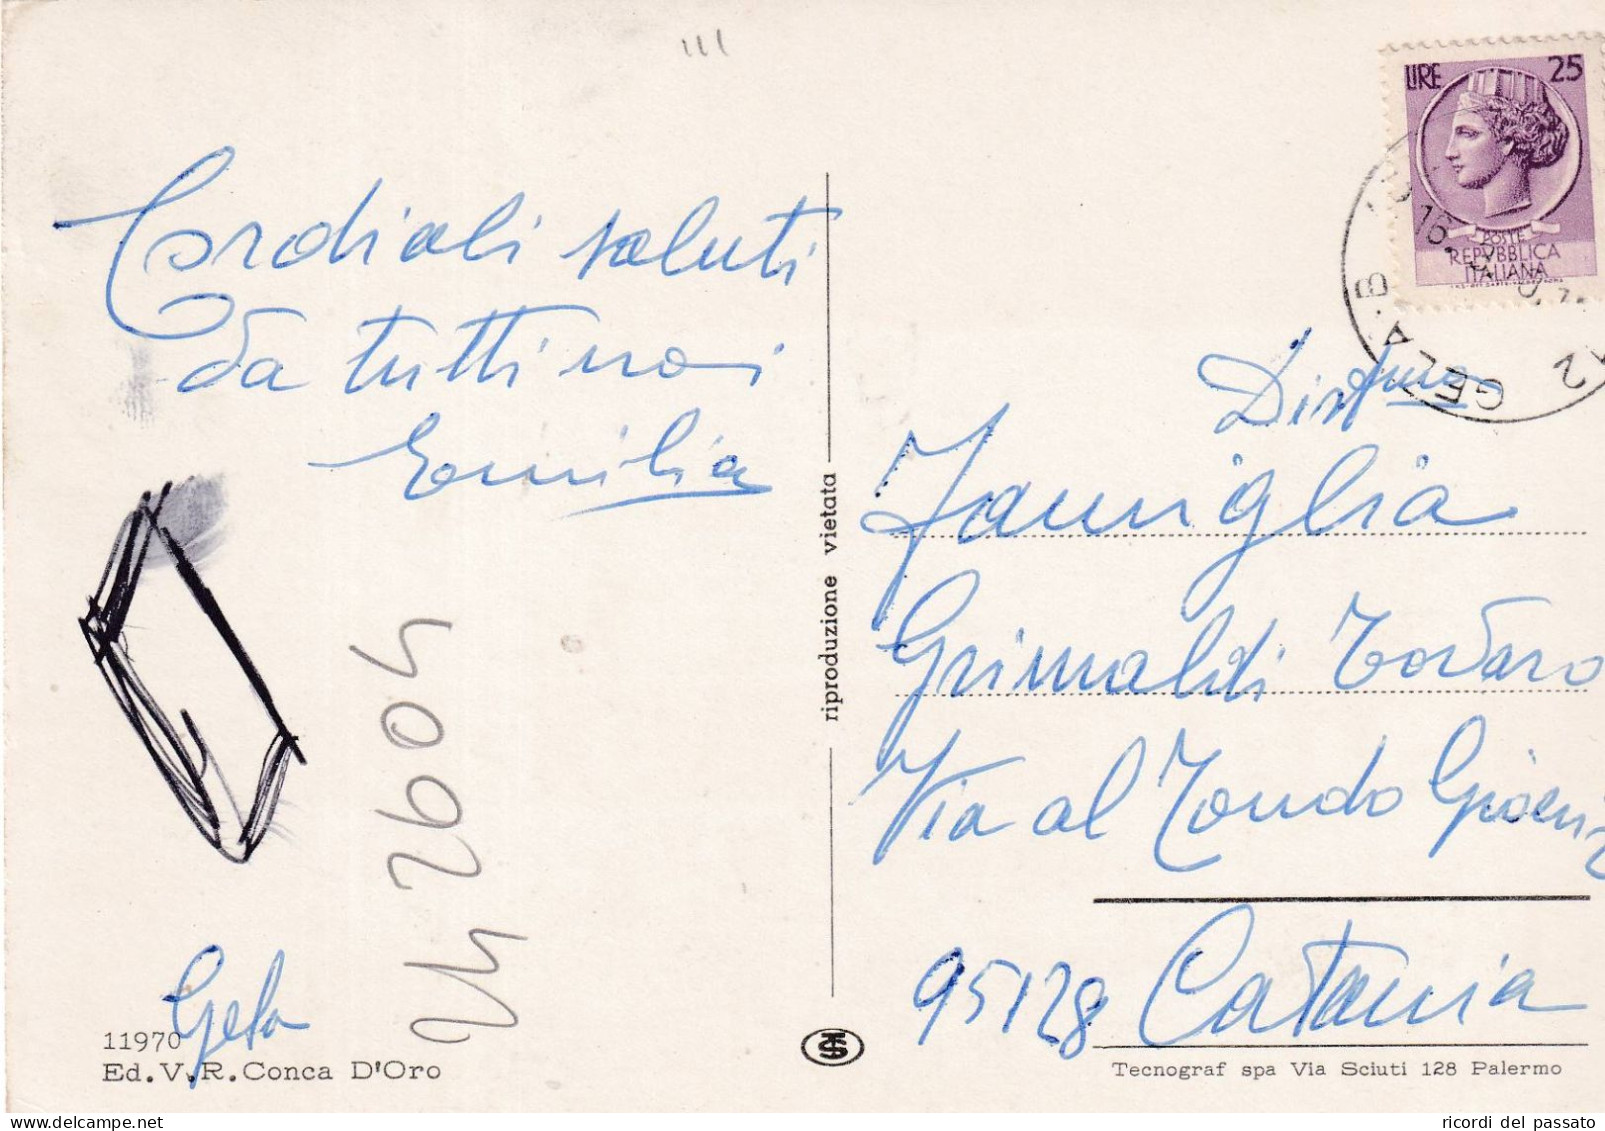 LIRE 25
POSTE
REPVBBLICA
ITALIANA
GELA
Cordiali saluti
da tutti noi
Emilia
Gela
11970
Ed.V.R.Conca D'Oro
riproduzione vietata
Dist/mma
Famiglia
Grimaldi Todaro
Via al Tondo Gioeni
95128 Catania
Tecnograf spa Via Sciuti 128 Palermo
ricordi del passato